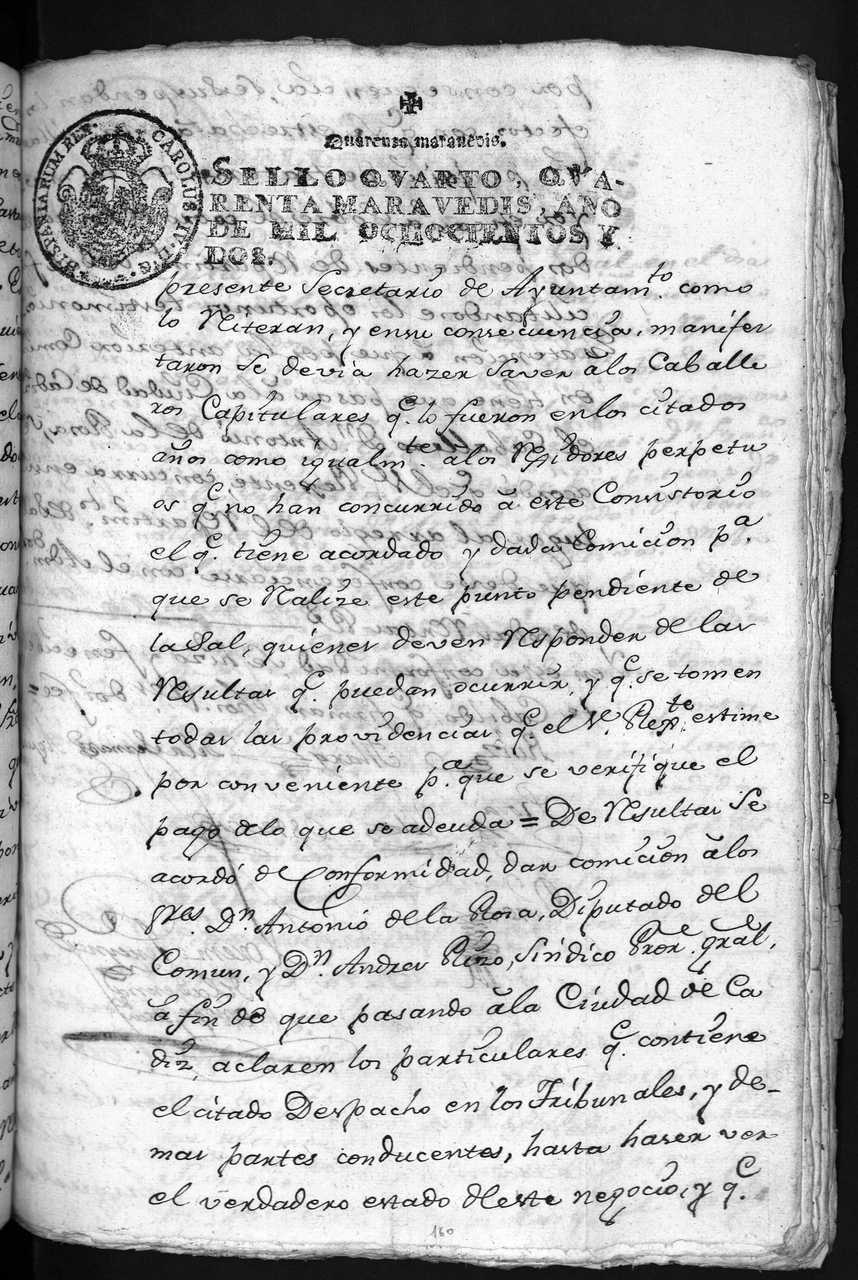 ✠
Quarenta maravedis.
SELLO QVARTO, QVA-
RENTA MARAVEDIS, AÑO
DE MIL OCHOCIENTOS Y
DOS.
CAROLUS IV D G HISPANIARUM REX
presente Secretario de Ayuntam.to como
lo Niteran, y en su consecuencia, manifes
taron se devia hazer saver a los Caballe
ros Capitulares q.e lo fueron en los citados
años como igualm.te a los Rexidores perpetu
os q.e no han concurrido â este Consistorio
el q.e tiene acordado y dada Comicion p.a
que se Nalize este punto pendiente de
la Sal, quienes deven Nsponder de las
Nsultas q.e puedan ocurrir, y q.e se tomen
todas las providencias q.e el S.r Rex.te estime
por conveniente p.a que se verifique el
pago dlo que se adeuda = De Nsultas se
acordó de Conformidad, dar comicion â los
Sres. Dn. Antonio de la Rosa, Diputado del
Comun, y Dn. Andres Rizo, Sindico Pror. gral,
â fin de que pasando âla Ciudad de Ca
diz, aclaren los particulares q.e contiene
el citado Despacho en los Tribunales, y de-
mas partes conducentes, hasta haser ver
el verdadero estado deste negocio, y q.e
160